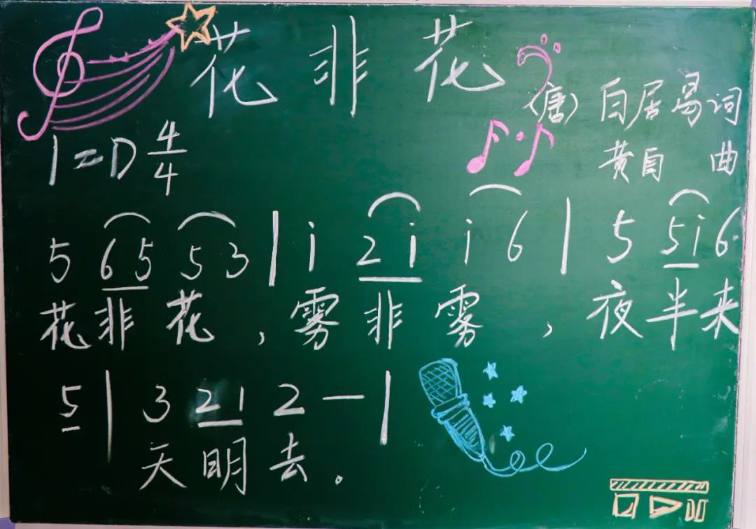 花非花
(唐)白居易词
1=D 4/4
黄自 曲
5 65 53 | i 2i i6 | 5 5i6.
花非花，雾非雾，夜半来
5 | 3 21 2 — |
天明去。